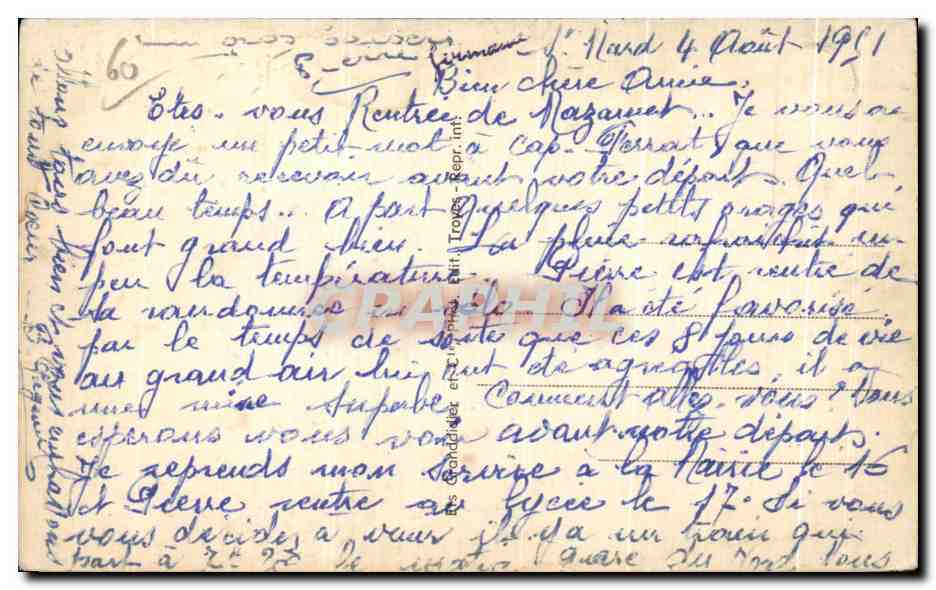 St Mard 4 Août 1951
Bien chère Amie,
Etes-vous Rentrée de Mazamet.. Je vous ai
envoyé un petit mot à Cap-Ferrat, que vous
avez dû recevoir avant votre départ. Quel
beau temps.. A part quelques petits orages qui
font grand bien. La pluie rafraichit un
peu la température. Pierre est rentré de
sa randonnée en vélo. Il a été favorisé
par le temps de sorte que ces 8 jours de vie
au grand air lui ont été agréables, il a
une mine superbe. Comment allez-vous? Nous
espérons vous voir avant notre départ.
Je reprends mon service à la Mairie le 16
et Pierre rentre au lycée le 17. Si vous
vous décidez à venir il y a un train qui
part à 7h du matin gare du Nord
Allons tous bien et vous embrassons
de tout coeur
Pierre Germaine
60
Edit. Troyes - Repr. int.
Les Granddidier et
CPAPHIL